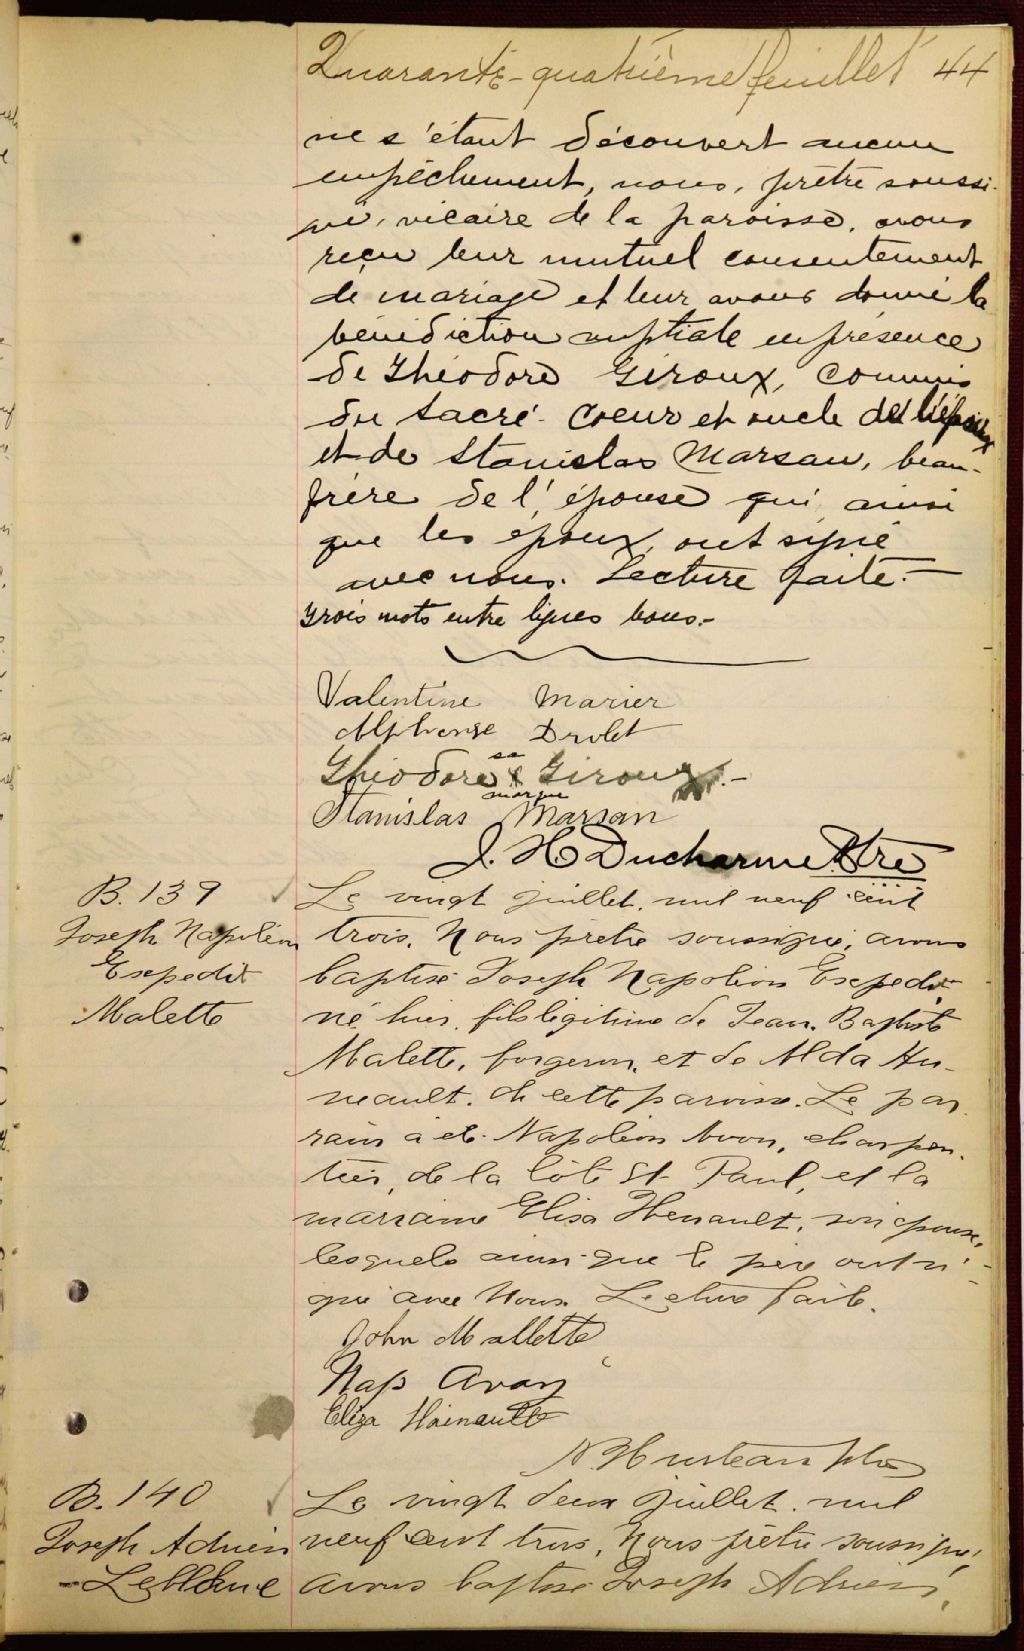 Quarante-quatrième feuillet 44
ne s'étant découvert aucun
empêchement, nous, prêtre soussi-
gné, vicaire de la paroisse, avons
reçu leur mutuel consentement
de mariage et leur avons donné la
bénédiction nuptiale en présence
de Théodore Giroux, commis
du Sacré-Coeur et oncle de l'époux
et de Stanislas Marsan, beau-
frère de l'épouse qui, ainsi
que les époux, ont signé
avec nous. Lecture faite.—
Trois mots entre lignes bons.-
Valentine Marier
Alphonse Drolet
sa
Théodore x Giroux.-
marque
Stanislas Marsan
J. H. Ducharme Ptre
B. 139
Joseph Napoléon
Expedit
Malette
Le vingt juillet, mil neuf cent
trois, Nous prêtre soussigné, avons
baptisé Joseph Napoléon Expedit,
né hier, fils légitime de Jean-Baptiste
Malette, forgeron, et de Alda Hu-
neault, de cette paroisse. Le par-
rain a été Napoléon Avon, charpen-
tier, de la Côte St Paul, et la
marraine Elisa Henault, son épouse,
lesquels ainsi que le père ont si-
gné avec Nous. Lecture faite.
John Mallette
Nap Avon
Eliza Hainault
N Hurteau ptre
B. 140
Joseph Adrien
Leblanc
Le vingt deux juillet, mil
neuf cent trois, Nous prêtre soussigné,
avons baptisé Joseph Adrien,